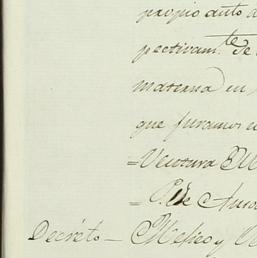 propio auto a
pectivam.te de
materna en
que juramos e
=Ventura
P. de
Decreto - Mexico y